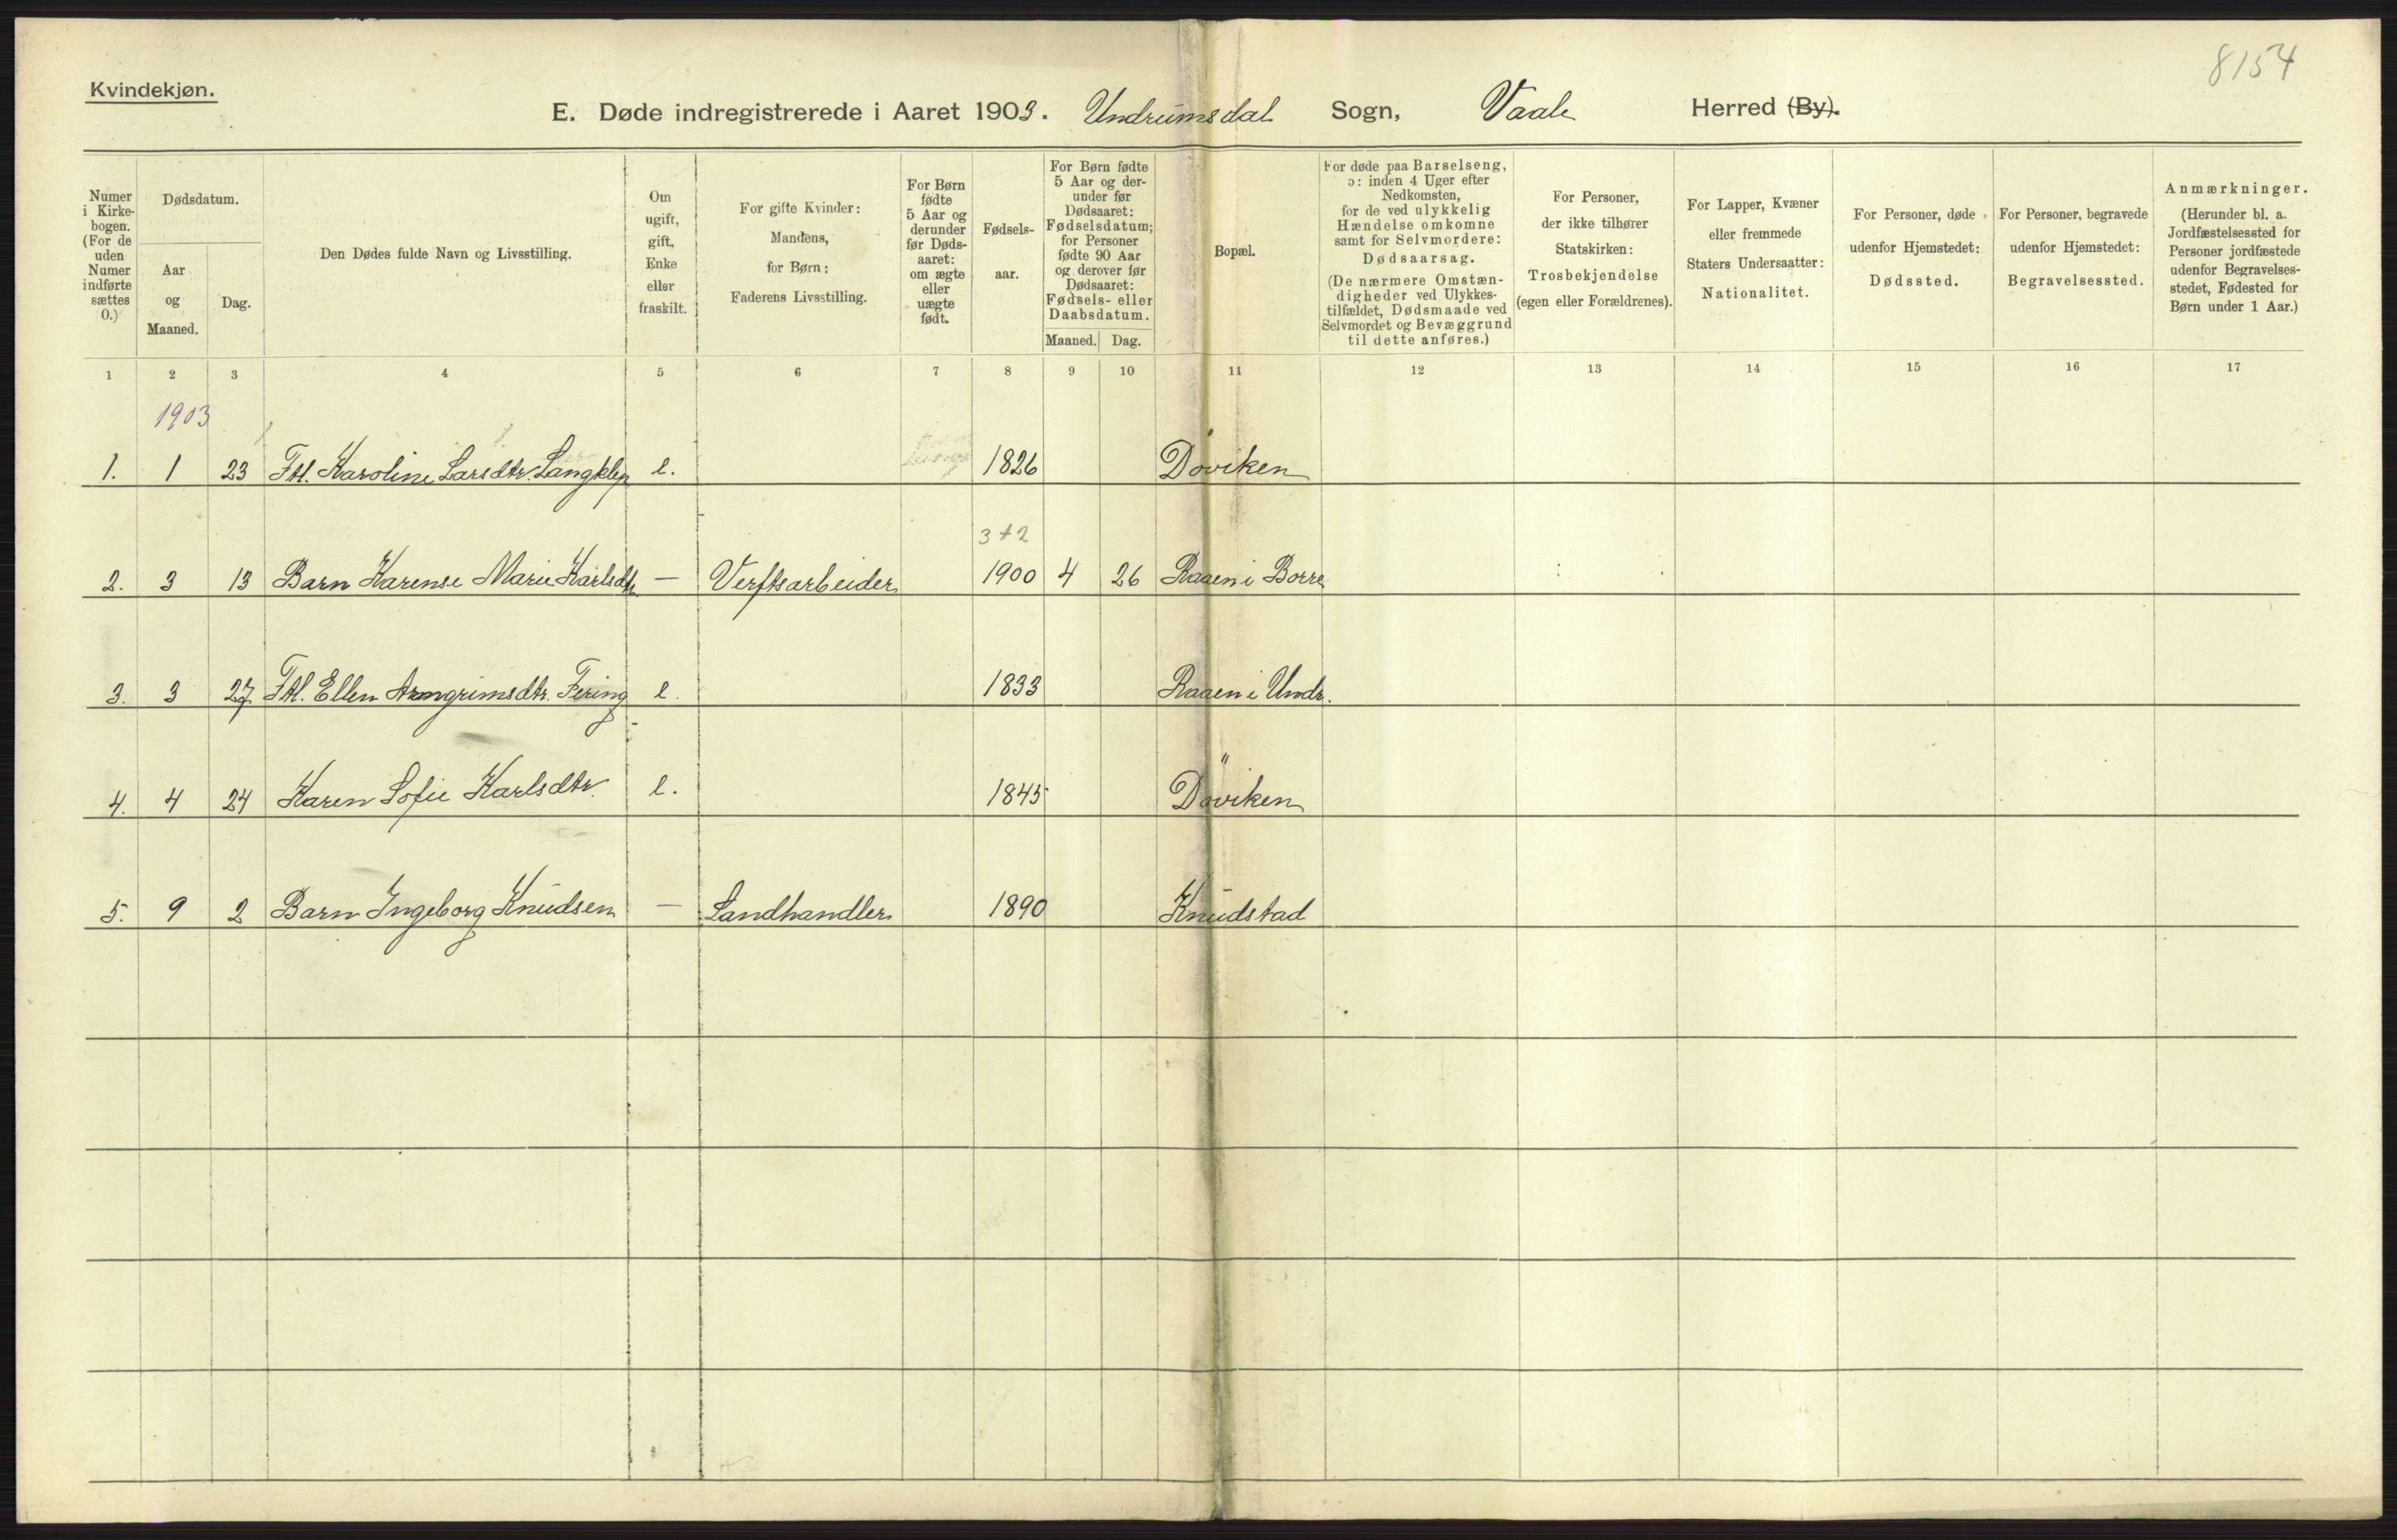 8154
Kvindekjøn.
E. Døde indregistrerede i Aaret 1903. Undrumsdal Sogn, Vaale Herred (By).
Numer i Kirkebogen. (For de uden Numer indførte sættes 0.)
Dødsdatum.
Aar og Maaned.
Dag.
Den Dødes fulde Navn og Livsstilling.
Om ugift, gift, Enke eller fraskilt.
For gifte Kvinder: Mandens, for Børn: Faderens Livsstilling.
For Børn fødte 5 Aar og derunder før Dødsaaret: om ægte eller uægte født.
Fødselsaar.
For Børn fødte 5 Aar og derunder før Dødsaaret: Fødselsdatum; for Personer fødte 90 Aar og derover før Dødsaaret: Fødsels- eller Daabsdatum.
Maaned. Dag.
Bopæl.
For døde paa Barselseng, ɔ: inden 4 Uger efter Nedkomsten, for de ved ulykkelig Hændelse omkomne samt for Selvmordere: Dødsaarsag. (De nærmere Omstændigheder ved Ulykkestilfældet, Dødsmaade ved Selvmordet og Bevæggrund til dette anføres.)
For Personer, der ikke tilhører Statskirken: Trosbekjendelse (egen eller Forældrenes).
For Lapper, Kvæner eller fremmede Staters Undersaatter: Nationalitet.
For Personer, døde udenfor Hjemstedet: Dødssted.
For Personer, begravede udenfor Hjemstedet: Begravelsessted.
Anmærkninger. (Herunder bl. a. Jordfæstelsessted for Personer jordfæstede udenfor Begravelsesstedet, Fødested for Børn under 1 Aar.)
1 2 3 4 5 6 7 8 9 10 11 12 13 14 15 16 17
1903
1. 1 23 Ftl. Karoline Larsdtr. Langklep e. 1826 Döviken
3 + 2
2. 3 13 Barn Karense Marie Karlsdtr. — Verftsarbeider 1900 4 26 Raaen i Borre
3. 3 27 Ftl. Ellen Arngrimsdtr. Fering e. 1833 Raaen i Undr.
4. 4 24 Karen Sofie Karlsdtr. e. 1845 Döviken
5. 9 2 Barn Ingeborg Knudsen — Landhandler 1890 Knudstad